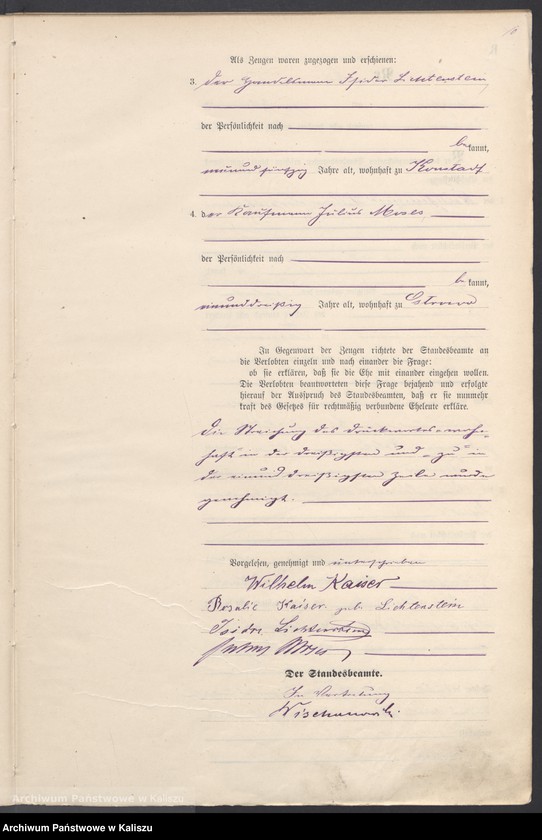 Als Zeugen waren zugezogen und erschienen:
3. der Handelsmann Isidor Lichtenstein
der Persönlichkeit nach
bekannt,
neunundfünfzig Jahre alt, wohnhaft zu Konstadt
4. der Kaufmann Julius Moses
der Persönlichkeit nach
bekannt,
einunddreißig Jahre alt, wohnhaft zu Ostrowo
In Gegenwart der Zeugen richtete der Standesbeamte an
die Verlobten einzeln und nach einander die Frage:
ob sie erklären, daß sie die Ehe mit einander eingehen wollen.
Die Verlobten beantworteten diese Frage bejahend und erfolgte
hierauf der Ausspruch des Standesbeamten, daß er sie nunmehr
kraft des Gesetzes für rechtmäßig verbundene Eheleute erkläre.
Die Streichung des Druckwortes „wohn-
haft" in der dreißigsten und „zu" in
der einund dreißigsten Zeile wurde
genehmigt.
Vorgelesen, genehmigt und unterschrieben
Wilhelm Kaiser
Rosalie Kaiser geb. Lichtenstein
Isidor Lichtenstein
Julius Moses
Der Standesbeamte.
In Vertretung
Archiwum Państwowe w Kaliszu
Archiwum Państwowe w Kaliszu